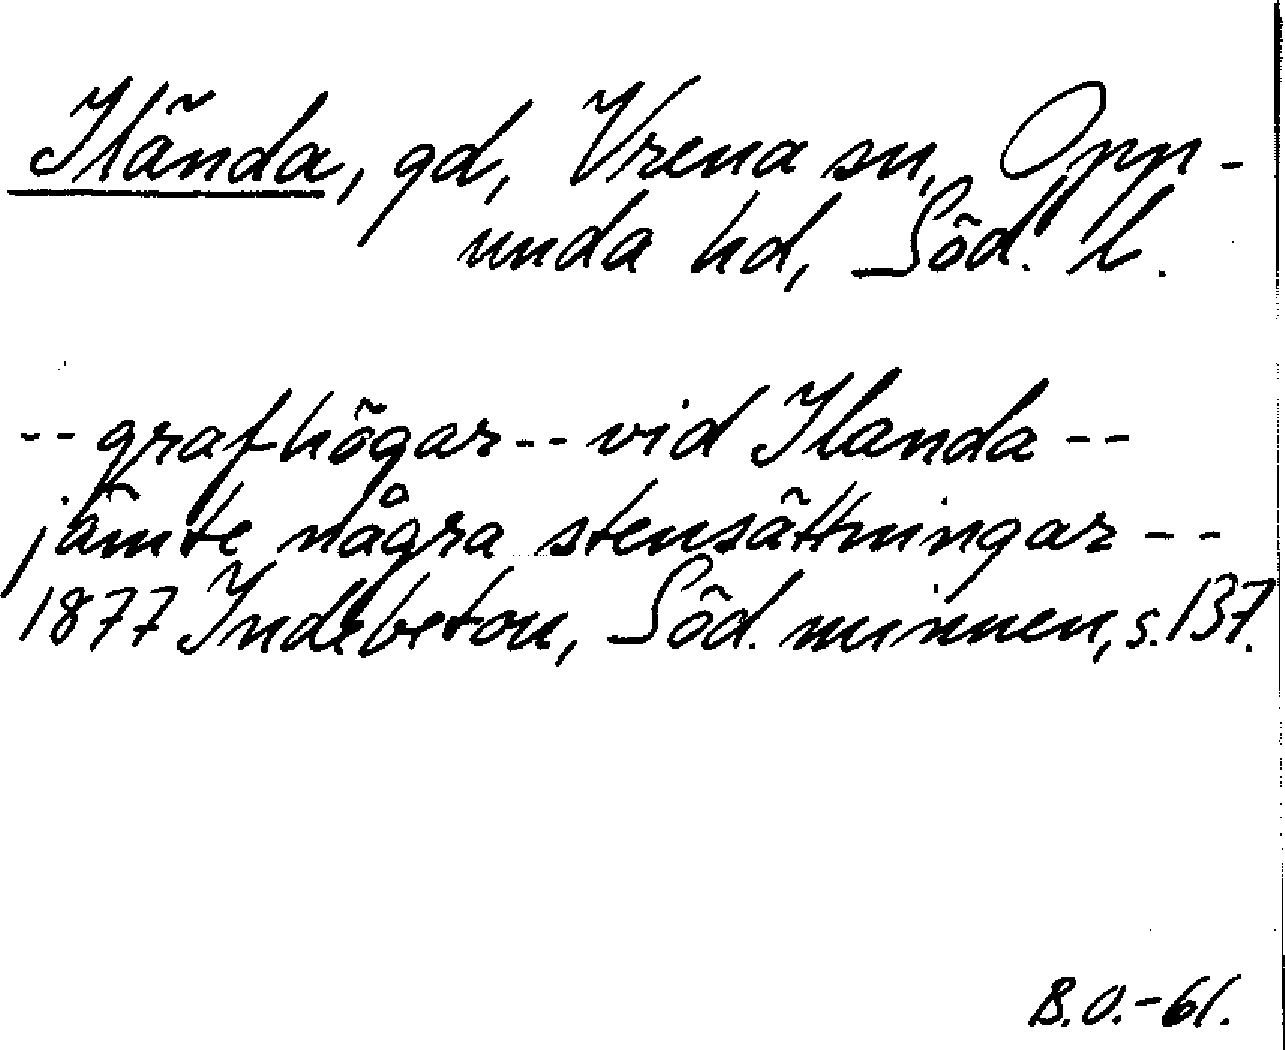 Iländа, gd, Vrena sn, Opp-
unda hd, Söd. l.
-- grafhögar -- vid Ilanda --
jämte några stensättningar --
1877 Indebetou, Söd. minnen, s. 137.
B.O.-61.